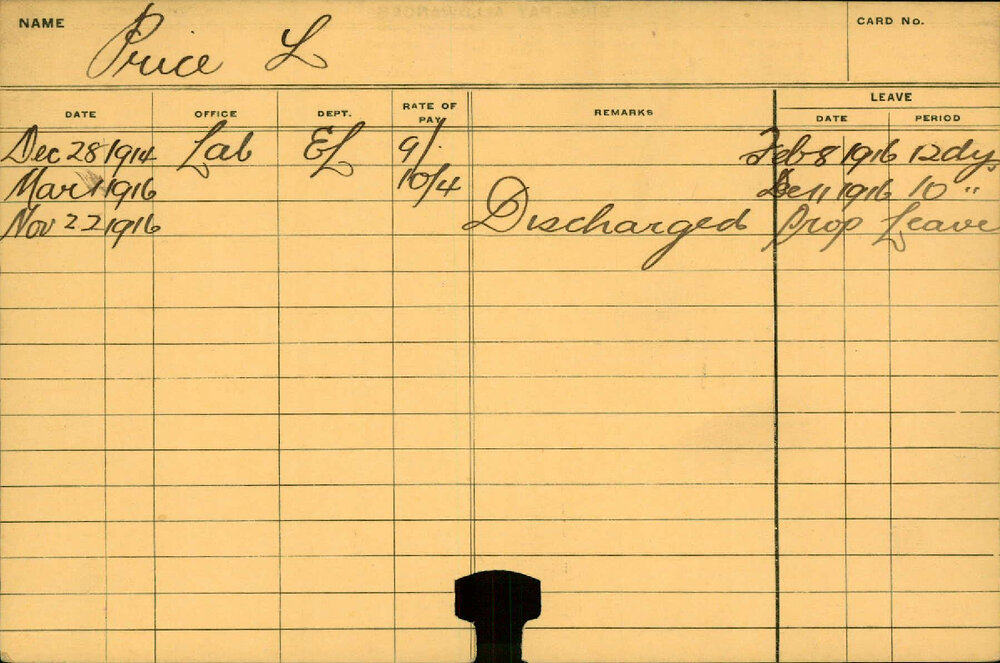 NAME Price L CARD No.
LEAVE
DATE OFFICE DEPT. RATE OF PAY REMARKS DATE PERIOD
Dec 28 1914 Lab EL 9/. Feb 8 1916 12dys
Mar 1 1916 10/4 Dec 11 1916 10 "
Nov 22 1916 Discharged Prop Leave